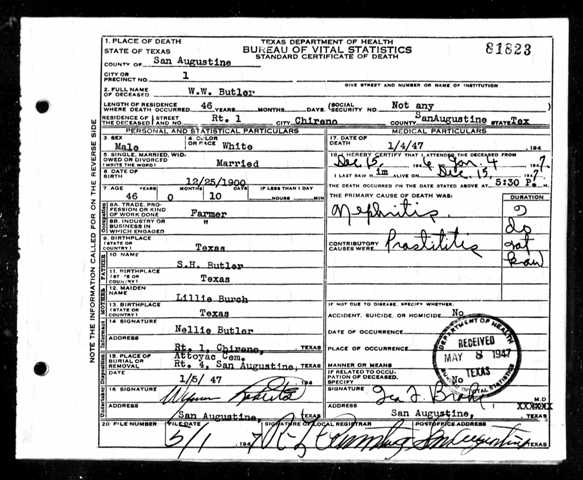 1. PLACE OF DEATH
STATE OF TEXAS
COUNTY OF San Augustine
CITY OR PRECINCT NO. 1
TEXAS DEPARTMENT OF HEALTH
BUREAU OF VITAL STATISTICS
STANDARD CERTIFICATE OF DEATH
81823
GIVE STREET AND NUMBER OR NAME OF INSTITUTION
2. FULL NAME OF DECEASED W.W. Butler
LENGTH OF RESIDENCE WHERE DEATH OCCURRED 46 YEARS MONTHS DAYS (SOCIAL SECURITY NO. Not any
RESIDENCE OF THE DECEASED STREET AND NO. Rt. 1 CITY Chireno COUNTY SanAugustine STATE Tex
PERSONAL AND STATISTICAL PARTICULARS
3 SEX Male
4 COLOR OR RACE White
5 SINGLE, MARRIED, WIDOWED OR DIVORCED (WRITE THE WORD) Married
6 DATE OF BIRTH 12/25/1900
7 AGE YEARS MONTHS DAYS IF LESS THAN 1 DAY
46 0 10 HOURS MIN
8A. TRADE, PROFESSION OR KIND OF WORK DONE Farmer
8B. INDUSTRY OR BUSINESS IN WHICH ENGAGED "
9 BIRTHPLACE (STATE OR COUNTRY) Texas
FATHER
10 NAME S.H. Butler
11. BIRTHPLACE (STATE OR COUNTRY) Texas
12. MAIDEN NAME Lillie Burch
13. BIRTHPLACE (STATE OR COUNTRY) Texas
14 SIGNATURE Nellie Butler
ADDRESS Rt. 1, Chireno, TEXAS
15. PLACE OF BURIAL OR REMOVAL Attoyac Cem.
Rt. 4, San Augustine, TEXAS
DATE 1/5/ 47
16 SIGNATURE
ADDRESS San Augustine, TEXAS
MEDICAL PARTICULARS
17. DATE OF DEATH 1/4/47 194
18. I HEREBY CERTIFY THAT I ATTENDED THE DECEASED FROM
Dec 15, Jan 4 1947.
I LAST SAW H im ALIVE ON Dec. 15, 194
THE DEATH OCCURRED ON THE DATE STATED ABOVE AT 5:30 P. M.
THE PRIMARY CAUSE OF DEATH WAS: DURATION
Nephritis
do not know
CONTRIBUTORY CAUSES WERE: Prostititis
IF NOT DUE TO DISEASE, SPECIFY WHETHER:
ACCIDENT, SUICIDE, OR HOMICIDE No
DATE OF OCCURRENCE
PLACE OF OCCURRENCE
MANNER OR MEANS
IF RELATED TO OCCUPATION OF DECEASED, SPECIFY No
SIGNATURE M.D.
ADDRESS San Augustine, TEXAS
DEPARTMENT OF HEALTH
RECEIVED
MAY 8 1947
TEXAS
VITAL STATISTICS
20 FILE NUMBER FILE DATE SIGNATURE OF LOCAL REGISTRAR POSTOFFICE ADDRESS
5/1 1947 San Augustine TEXAS
NOTE THE INFORMATION CALLED FOR ON THE REVERSE SIDE